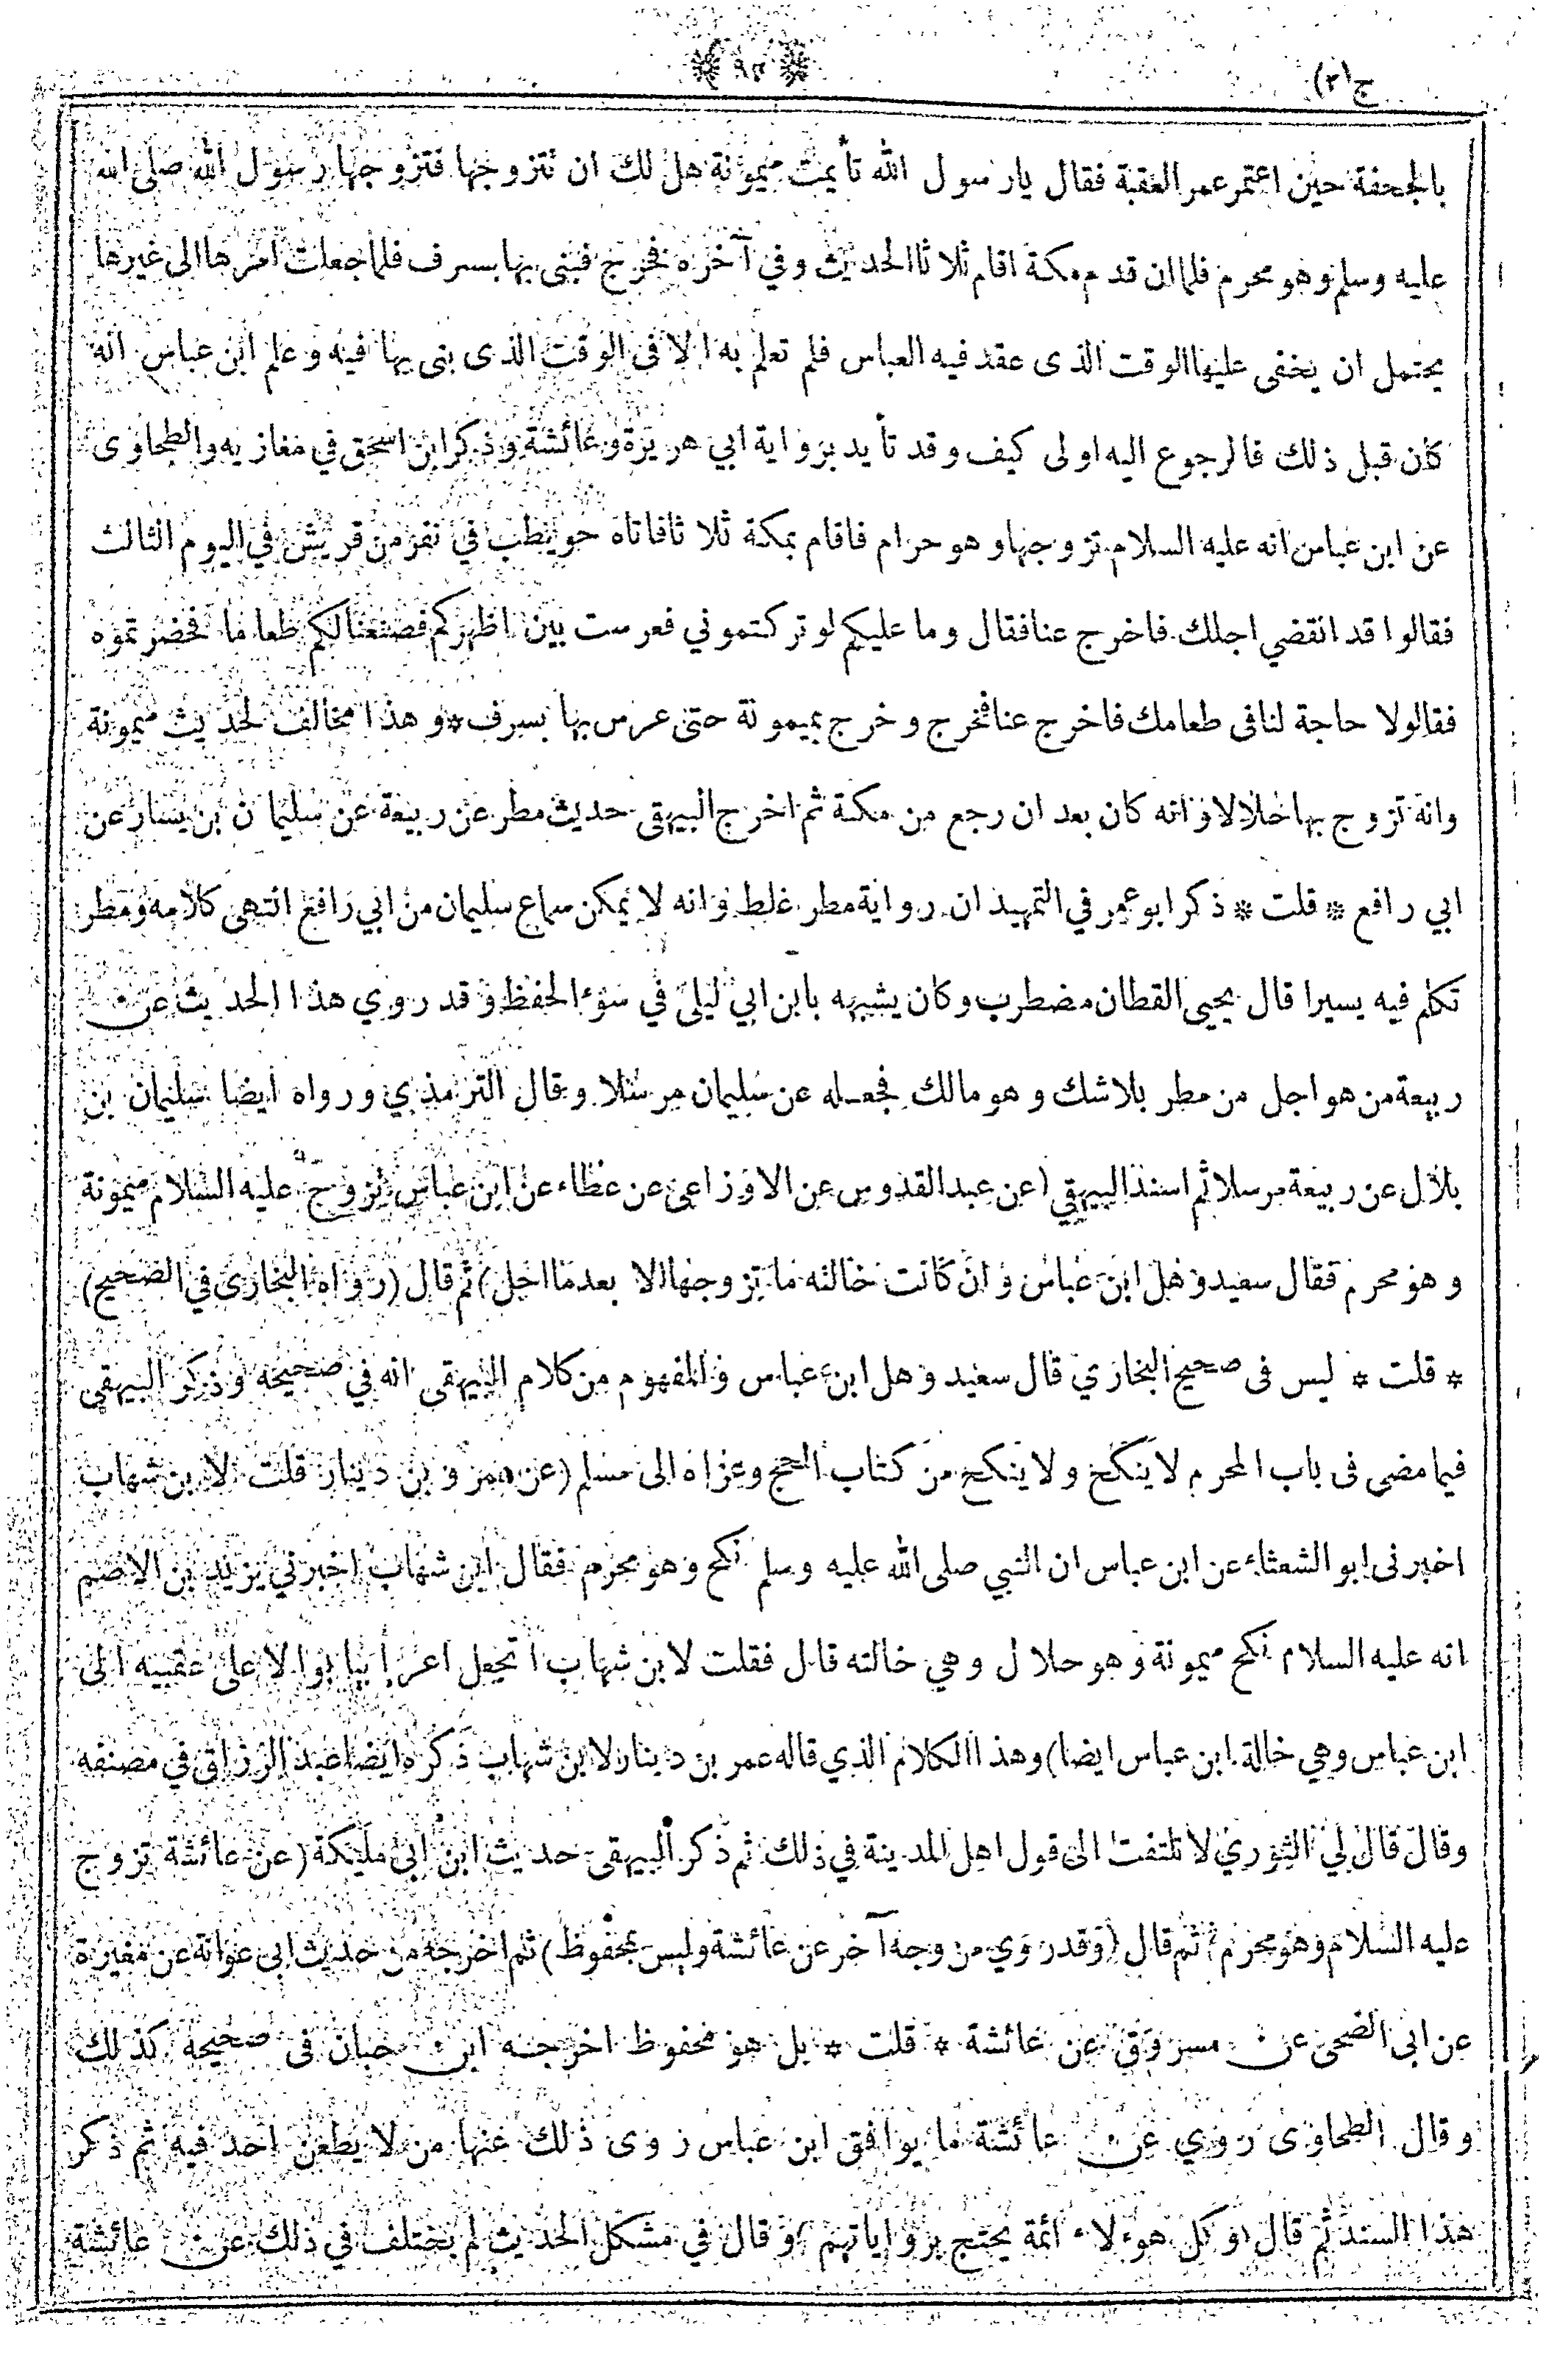 ج(٢)
بالجحفة حين اعتمر عمر العقبة فقال يارسول الله تأيمت ميمونة هل لك ان تتزوجها فتزوجها رسول الله صلى الله
عليه وسلم وهو محرم فلما ان قدم مكة اقام ثلاثا الحديث وفي آخره فخرج فبنى بها بسرف فلما جعلت امرها الى غيرها
يحتمل ان يخفى عليها الوقت الذى عقد فيه العباس فلم تعلم به الا فى الوقت الذى بنى بها فيه وعلم ابن عباس انه
كان قبل ذلك فالرجوع اليه اولى كيف وقد تأيد برواية ابي هريرة وعائشة وذكر ابن اسحق في مغازيه والطحاوى
عن ابن عباس انه عليه السلام تزوجها وهو حرام فاقام بمكة ثلاثا فاتاه حويطب في نفر من قريش في اليوم الثالث
فقالوا قد انقضي اجلك فاخرج عنا فقال وما عليكم لو تركتموني فعرست بين اظهركم فصنعنا لكم طعاما فحضرتموه
فقالوا لا حاجة لنا فى طعامك فاخرج عنا فخرج وخرج بميمونة حتى عرس بها بسرف * وهذا مخالف لحديث ميمونة
وانه تزوج بها حلالا وانه كان بعد ان رجع من مكة ثم اخرج البيهقى حديث مطر عن ربيعة عن سليمان بن يسار عن
ابي رافع * قلت * ذكر ابو عمر في التمهيد ان رواية مطر غلط وانه لا يمكن سماع سليمان من ابي رافع انتهى كلامه ومطر
تكلم فيه يسيرا قال يحيى القطان مضطرب وكان يشبهه بابن ابي ليلى في سوء الحفظ وقد روي هذا الحديث عن
ربيعة من هو اجل من مطر بلا شك وهو مالك فجعله عن سليمان مرسلا وقال الترمذي ورواه ايضا سليمان بن
بلال عن ربيعة مرسلا ثم اسند البيهقي (عن عبد القدوس عن الاوزاعى عن عطاء عن ابن عباس تزوج عليه السلام ميمونة
وهو محرم فقال سعيد وهل ابن عباس وان كانت خالته ما تزوجها الا بعد ما احل) ثم قال (رواه البخارى في الصحيح)
* قلت * ليس فى صحيح البخاري قال سعيد وهل ابن عباس والمفهوم من كلام البيهقى انه في صحيحه وذكر البيهقى
فيما مضى فى باب المحرم لا ينكح ولا ينكح من كتاب الحج وعزاه الى مسلم (عن عمرو بن دينار قلت لابن شهاب
اخبرنى ابو الشعثاء عن ابن عباس ان النبي صلى الله عليه وسلم نكح وهو محرم فقال ابن شهاب اخبرني يزيد بن الاصم
انه عليه السلام نكح ميمونة وهو حلال وهي خالته قال فقلت لابن شهاب اتجعل اعرابيا بوالا على عقبيه الى
ابن عباس وهي خالة ابن عباس ايضا) وهذا الكلام الذي قاله عمر بن دينار لابن شهاب ذكره ايضا عبد الرزاق في مصنفه
وقال قال لي الثوري لا تلتفت الى قول اهل المدينة في ذلك ثم ذكر البيهقى حديث ابن ابى مليكة (عن عائشة تزوج
عليه السلام وهو محرم) ثم قال (وقد روي من وجه آخر عن عائشة وليس بمحفوظ) ثم اخرجه من حديث ابى عوانة عن مغيرة
عن ابى الضحى عن مسروق عن عائشة * قلت * بل هو محفوظ اخرجه ابن حبان فى صحيحه كذلك
وقال الطحاوى روي عن عائشة ما يوافق ابن عباس روى ذلك عنها من لا يطعن احد فيه ثم ذكر
هذا السند ثم قال (وكل هوءلاء ائمة يحتج برواياتهم) وقال في مشكل الحديث لم يختلف في ذلك عن عائشة